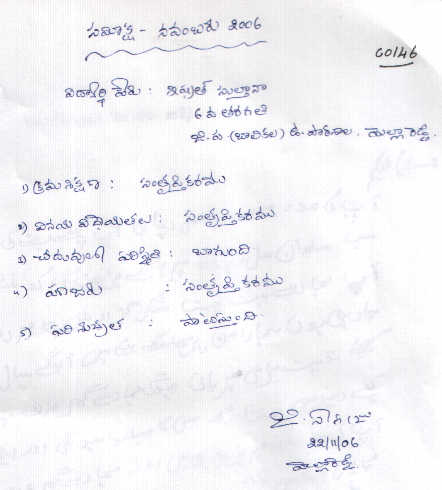 సమీక్ష - నవంబరు 2006
CO146
విద్యార్థి పేరు : ఇష్రత్ సుల్తానా
6 వ తరగతి
జి.ప. (బాలికల) ఉ. పాఠశాల,
1) క్రమశిక్షణ : సంతృప్తికరము
2) వినయ విధేయతలు : సంతృప్తికరము
3) చదువులో పరిస్థితి : బాగుంది
4) హాజరు : సంతృప్తికరము
5) పరిశుభ్రత : పాటిస్తుంది
22/11/06